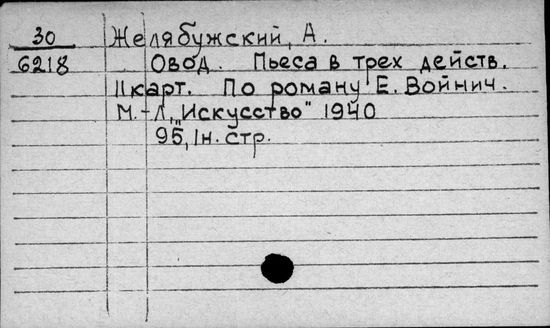 30 Желябужский, А.
6218 Овод. Пьеса в трех действ.
11 карт. По роману Е. Войнич.
М.-Л, "Искусство" 1940
95, 1н. стр.